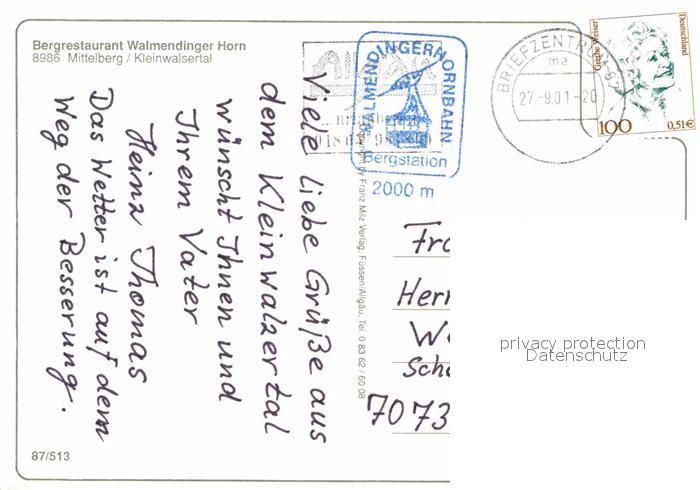 Bergrestaurant Walmendinger Horn
8986 Mittelberg / Kleinwalsertal
Viele liebe Grüße aus
dem Kleinwalzertal
wünscht Ihnen und
Ihrem Vater
Heinz Thomas
Das Wetter ist auf dem
Weg der Besserung.
87/513
WALMENDINGERHORNBAHN
Bergstation
2000 m
Franz Milz Verlag, Füssen/Allgäu, Tel. 0 83 62 / 60 08
BRIEFZENTRUM
27.-9.01-20
Grethe Weiser
Deutschland
100
0,51€
Fr
Herr
W
Sch
7073
privacy protection
Datenschutz